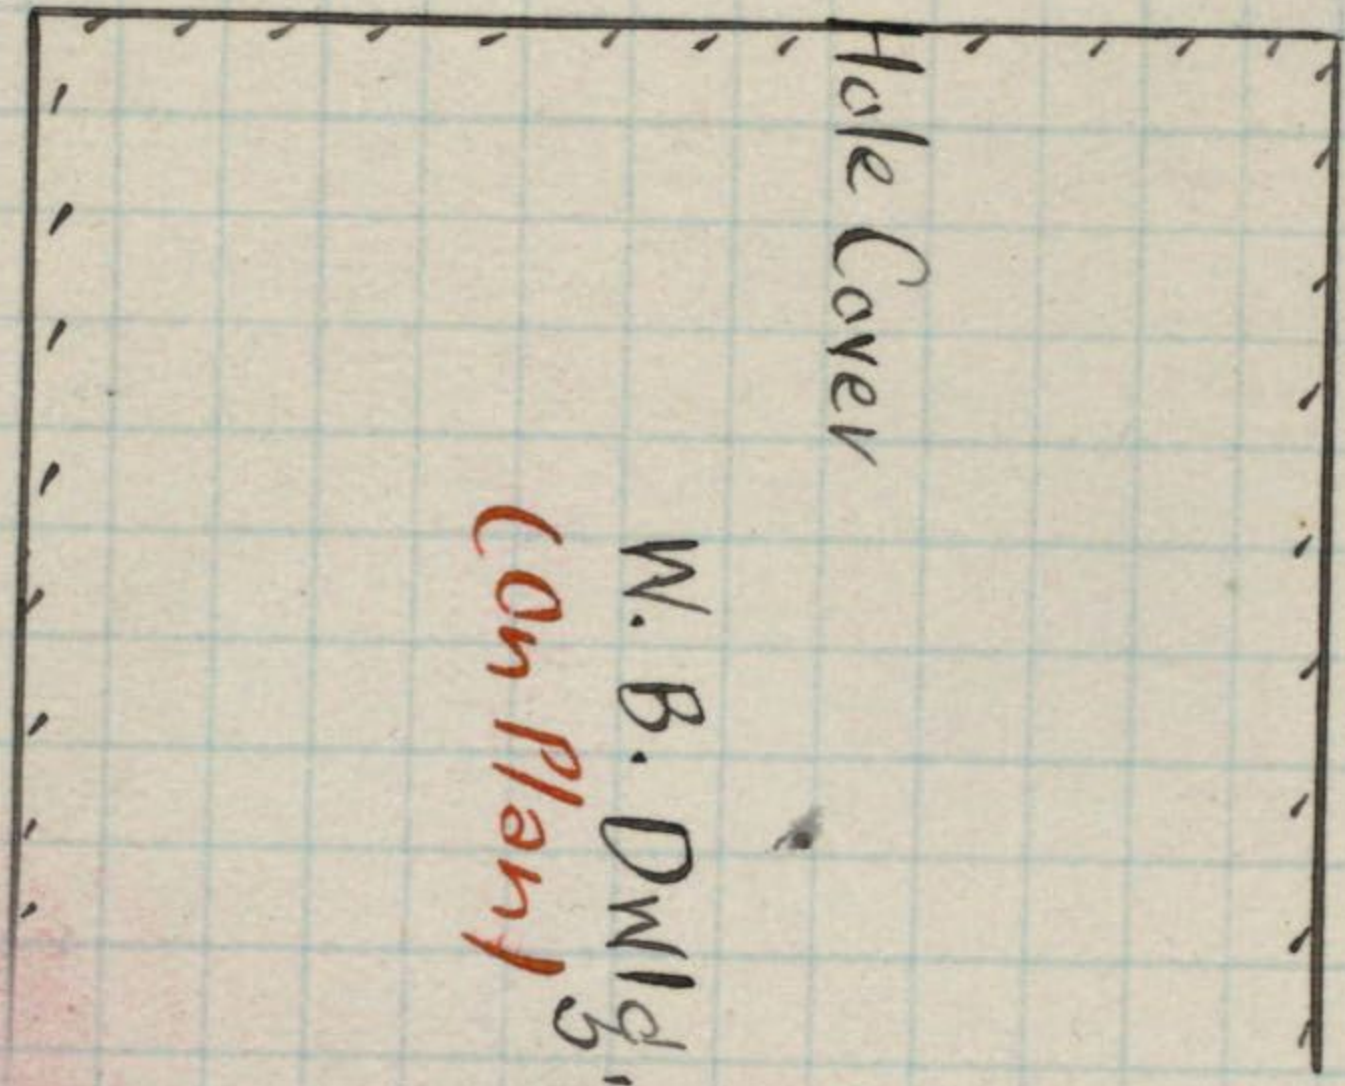 Hole Cover
W. B. Dwlg.
(On Plan)